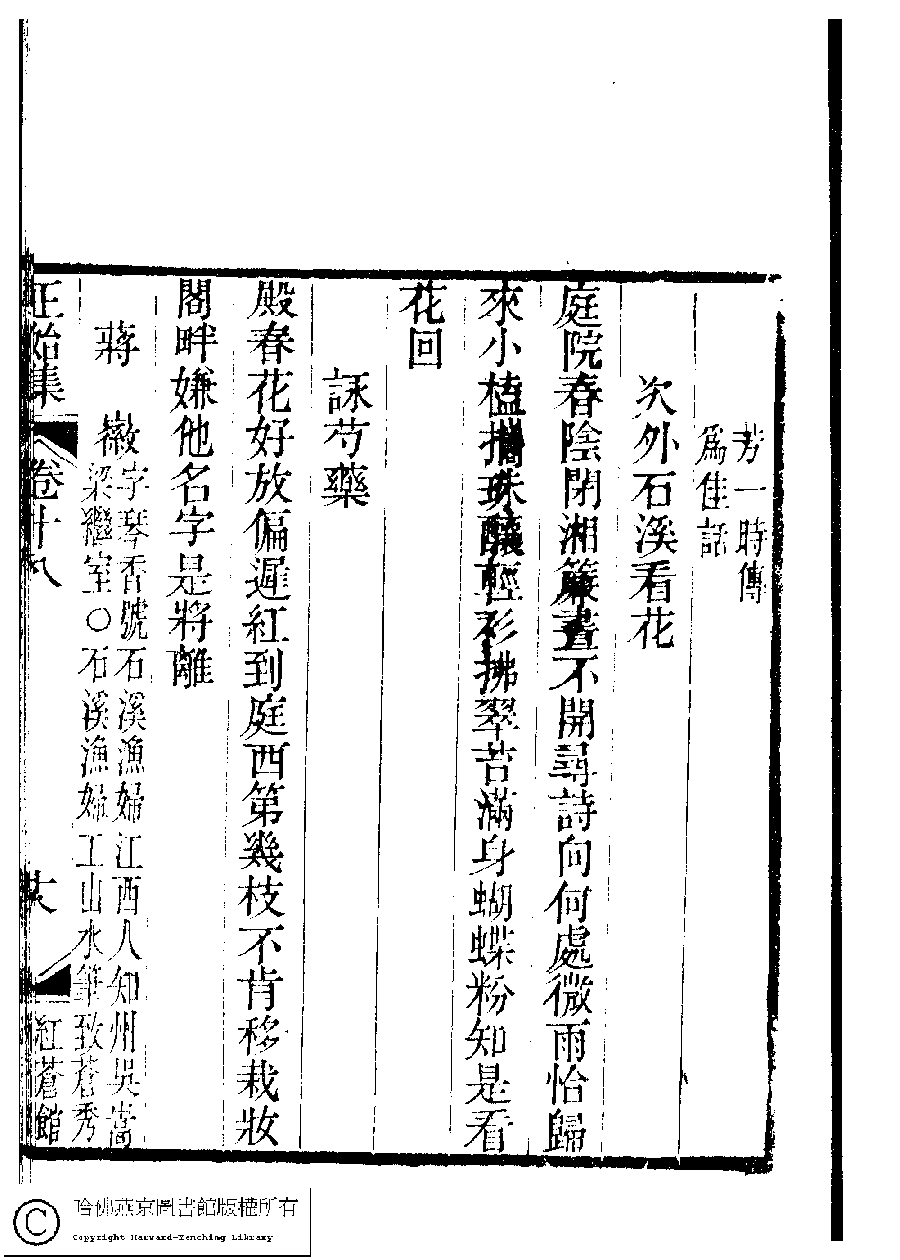 芳一時傳
爲佳話
次外石溪看花
庭院春陰閉湘簾晝不開尋詩向何處微雨恰歸
來小榼攜珠釀輕衫拂翠苔滿身蝴蝶粉知是看
花回
詠芍藥
殿春花好放偏遲紅到庭西第幾枝不肯移栽妝
閣畔嫌他名字是將離
蔣徽字琴香號石溪漁婦江西人知州吳嵩
梁繼室○石溪漁婦工山水筆致蒼秀
正始集
卷十八
紅蒼館
哈佛燕京圖書館版權所有
Copyright Harvard-Yenching Library